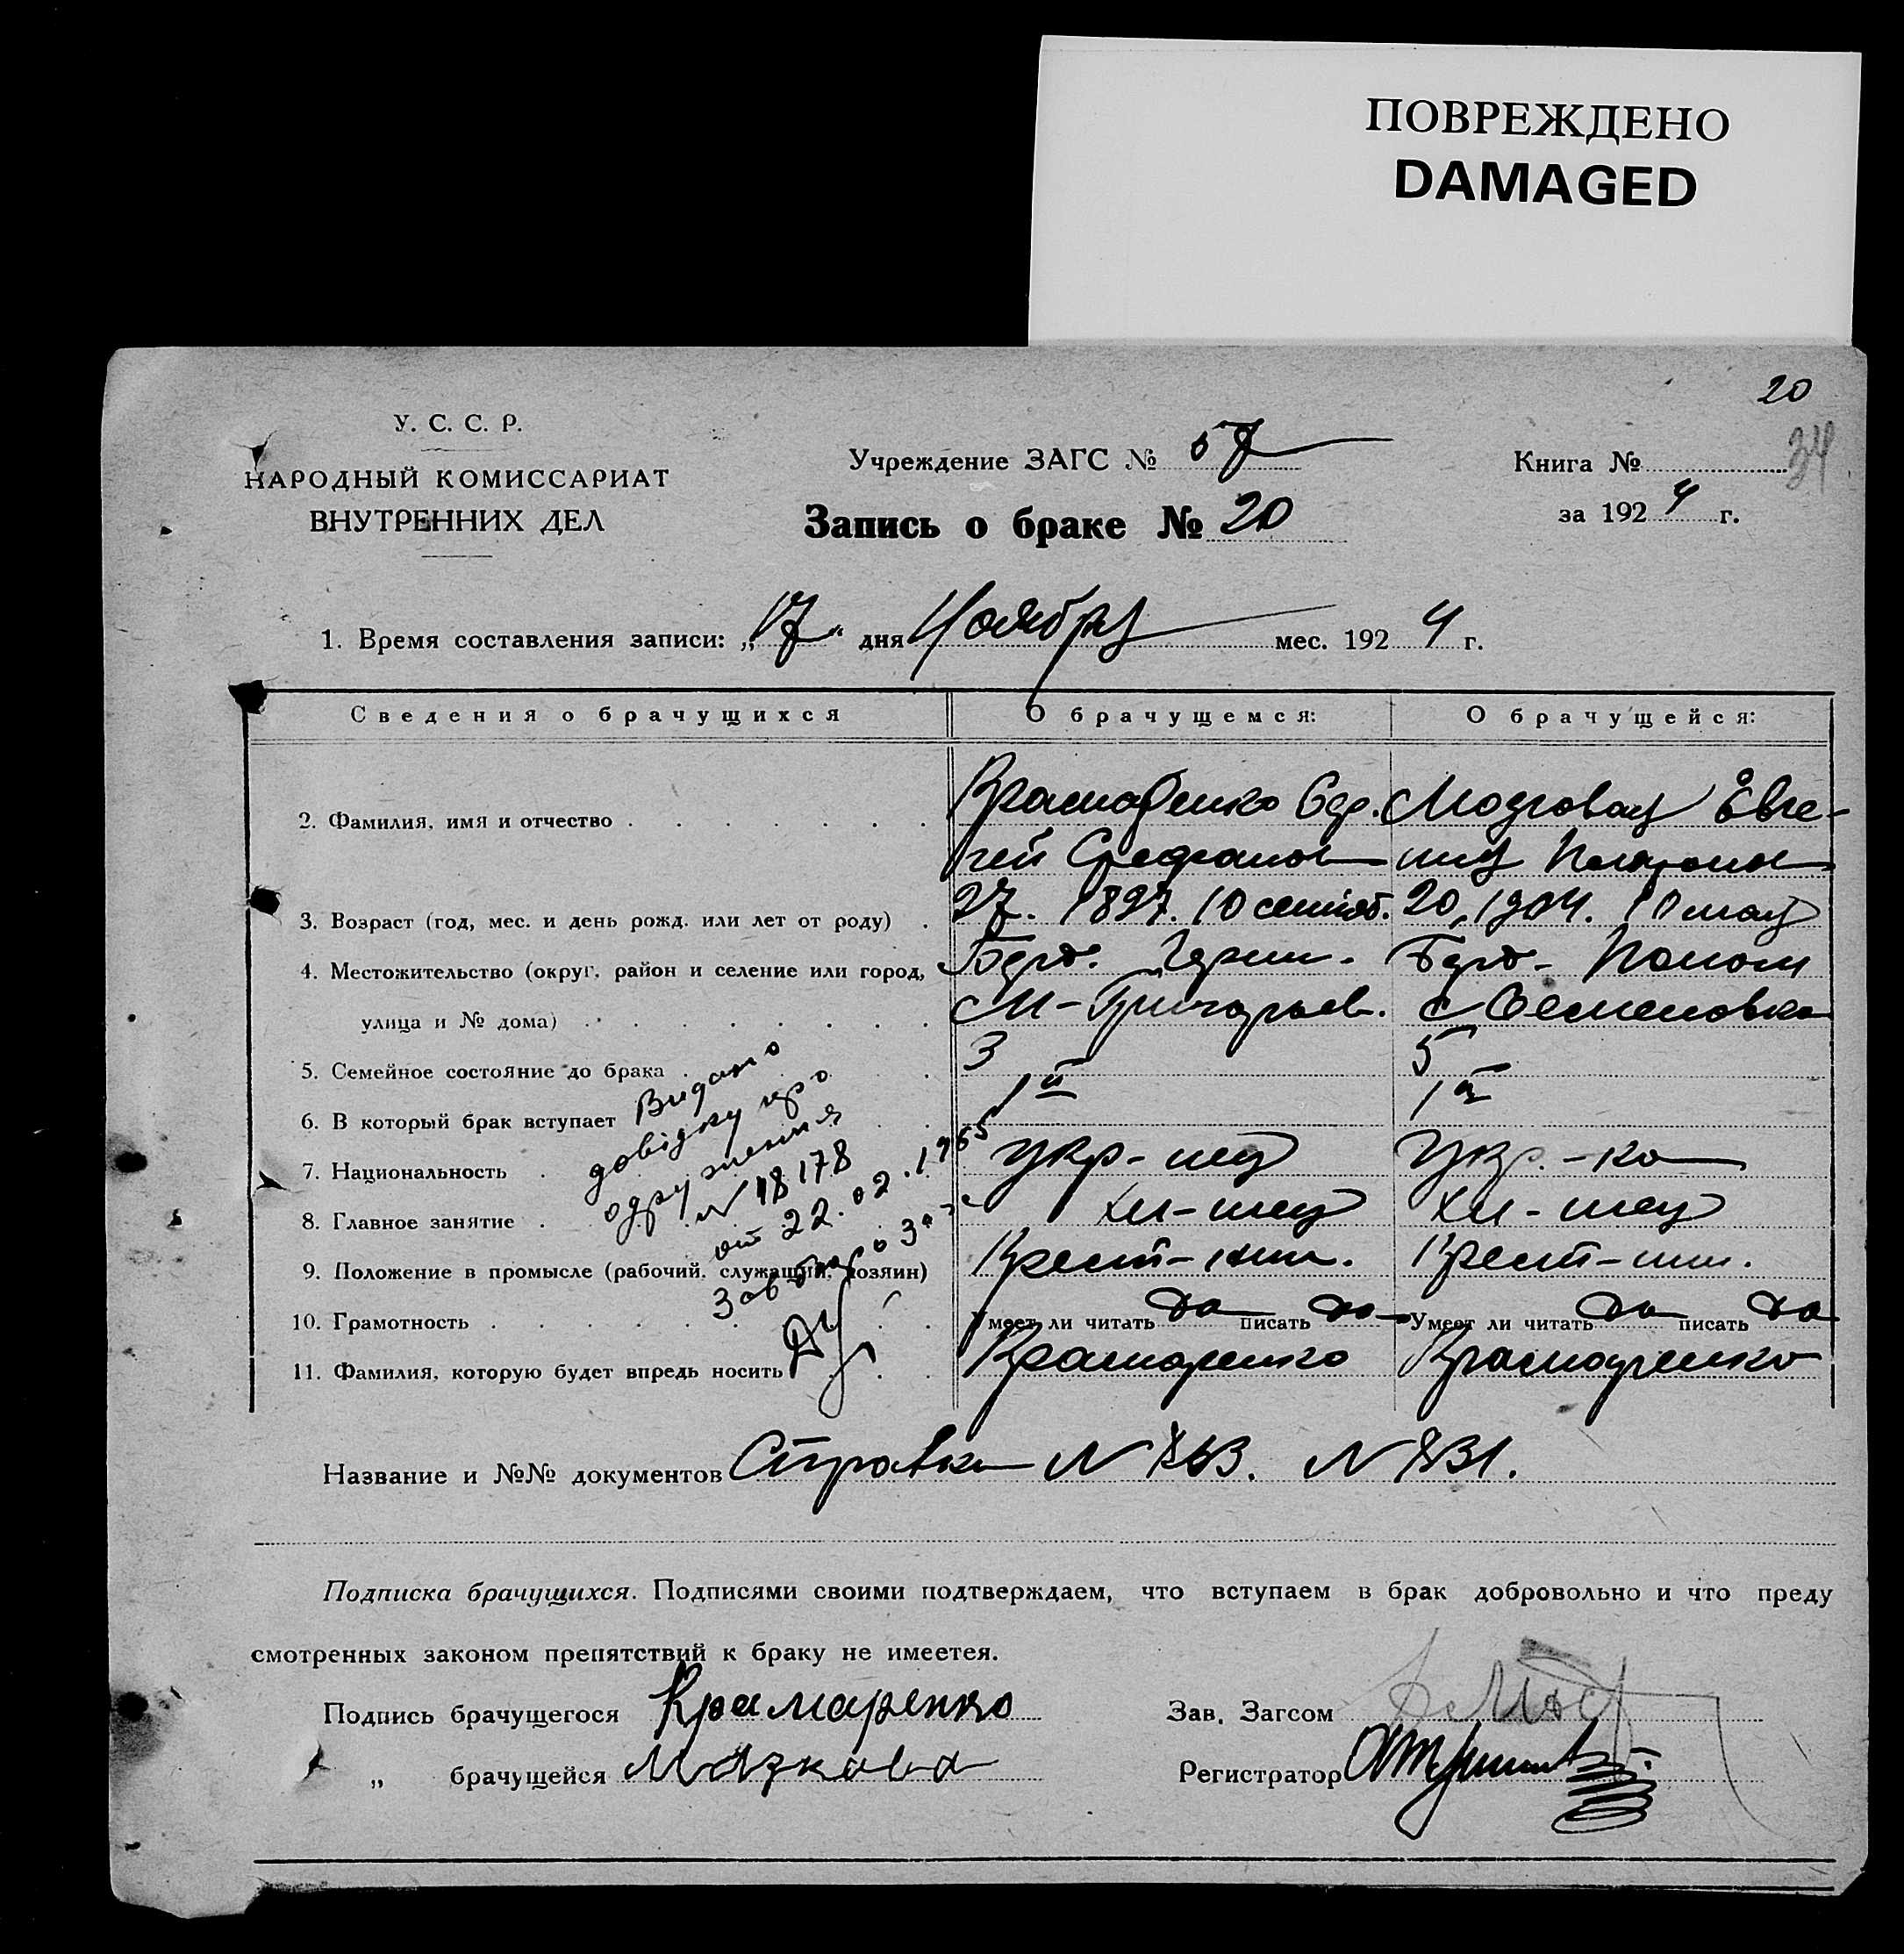 ПОВРЕЖДЕНО
DAMAGED
20
34
У. С. С. Р.
НАРОДНЫЙ КОМИССАРИАТ
ВНУТРЕННИХ ДЕЛ
Учреждение ЗАГС № 57
Запись о браке № 20
Книга №
за 1924 г.
1. Время составления записи: „17“ дня Ноября мес. 1924 г.
Сведения о брачущихся О брачущемся: О брачущейся:
2. Фамилия, имя и отчество Крамаренко Сер- Мозговая Евге-
гей Стефанов ния
3. Возраст (год, мес. и день рожд. или лет от роду) 27. 1897. 10 сентяб. 20, 1904. 10 мая
4. Местожительство (округ, район и селение или город, Берд. Черниг. Берд-
улица и № дома) с М-Григорьев. с Семеновка
5. Семейное состояние до брака 3 5
6. В который брак вступает 1й 1й
7. Национальность Укр-нец Укр.-ка
8. Главное занятие
9. Положение в промысле (рабочий, служащий, хозяин) Крест-нин. Крест-нин.
10. Грамотность Умеет ли читать да писать да Умеет ли читать да писать да
11. Фамилия, которую будет впредь носить Крамаренко Крамаренко
Видано
довідку про
одруження
N 18178
от 22.02.1965
Зав бюро Загс
Название и №№ документов Справка N 763. N 731.
Подписка брачущихся. Подписями своими подтверждаем, что вступаем в брак добровольно и что преду
смотренных законом препятствий к браку не имеетея.
Подпись брачущегося Крамаренко Зав. Загсом
„ брачущейся Мазкова Регистратор